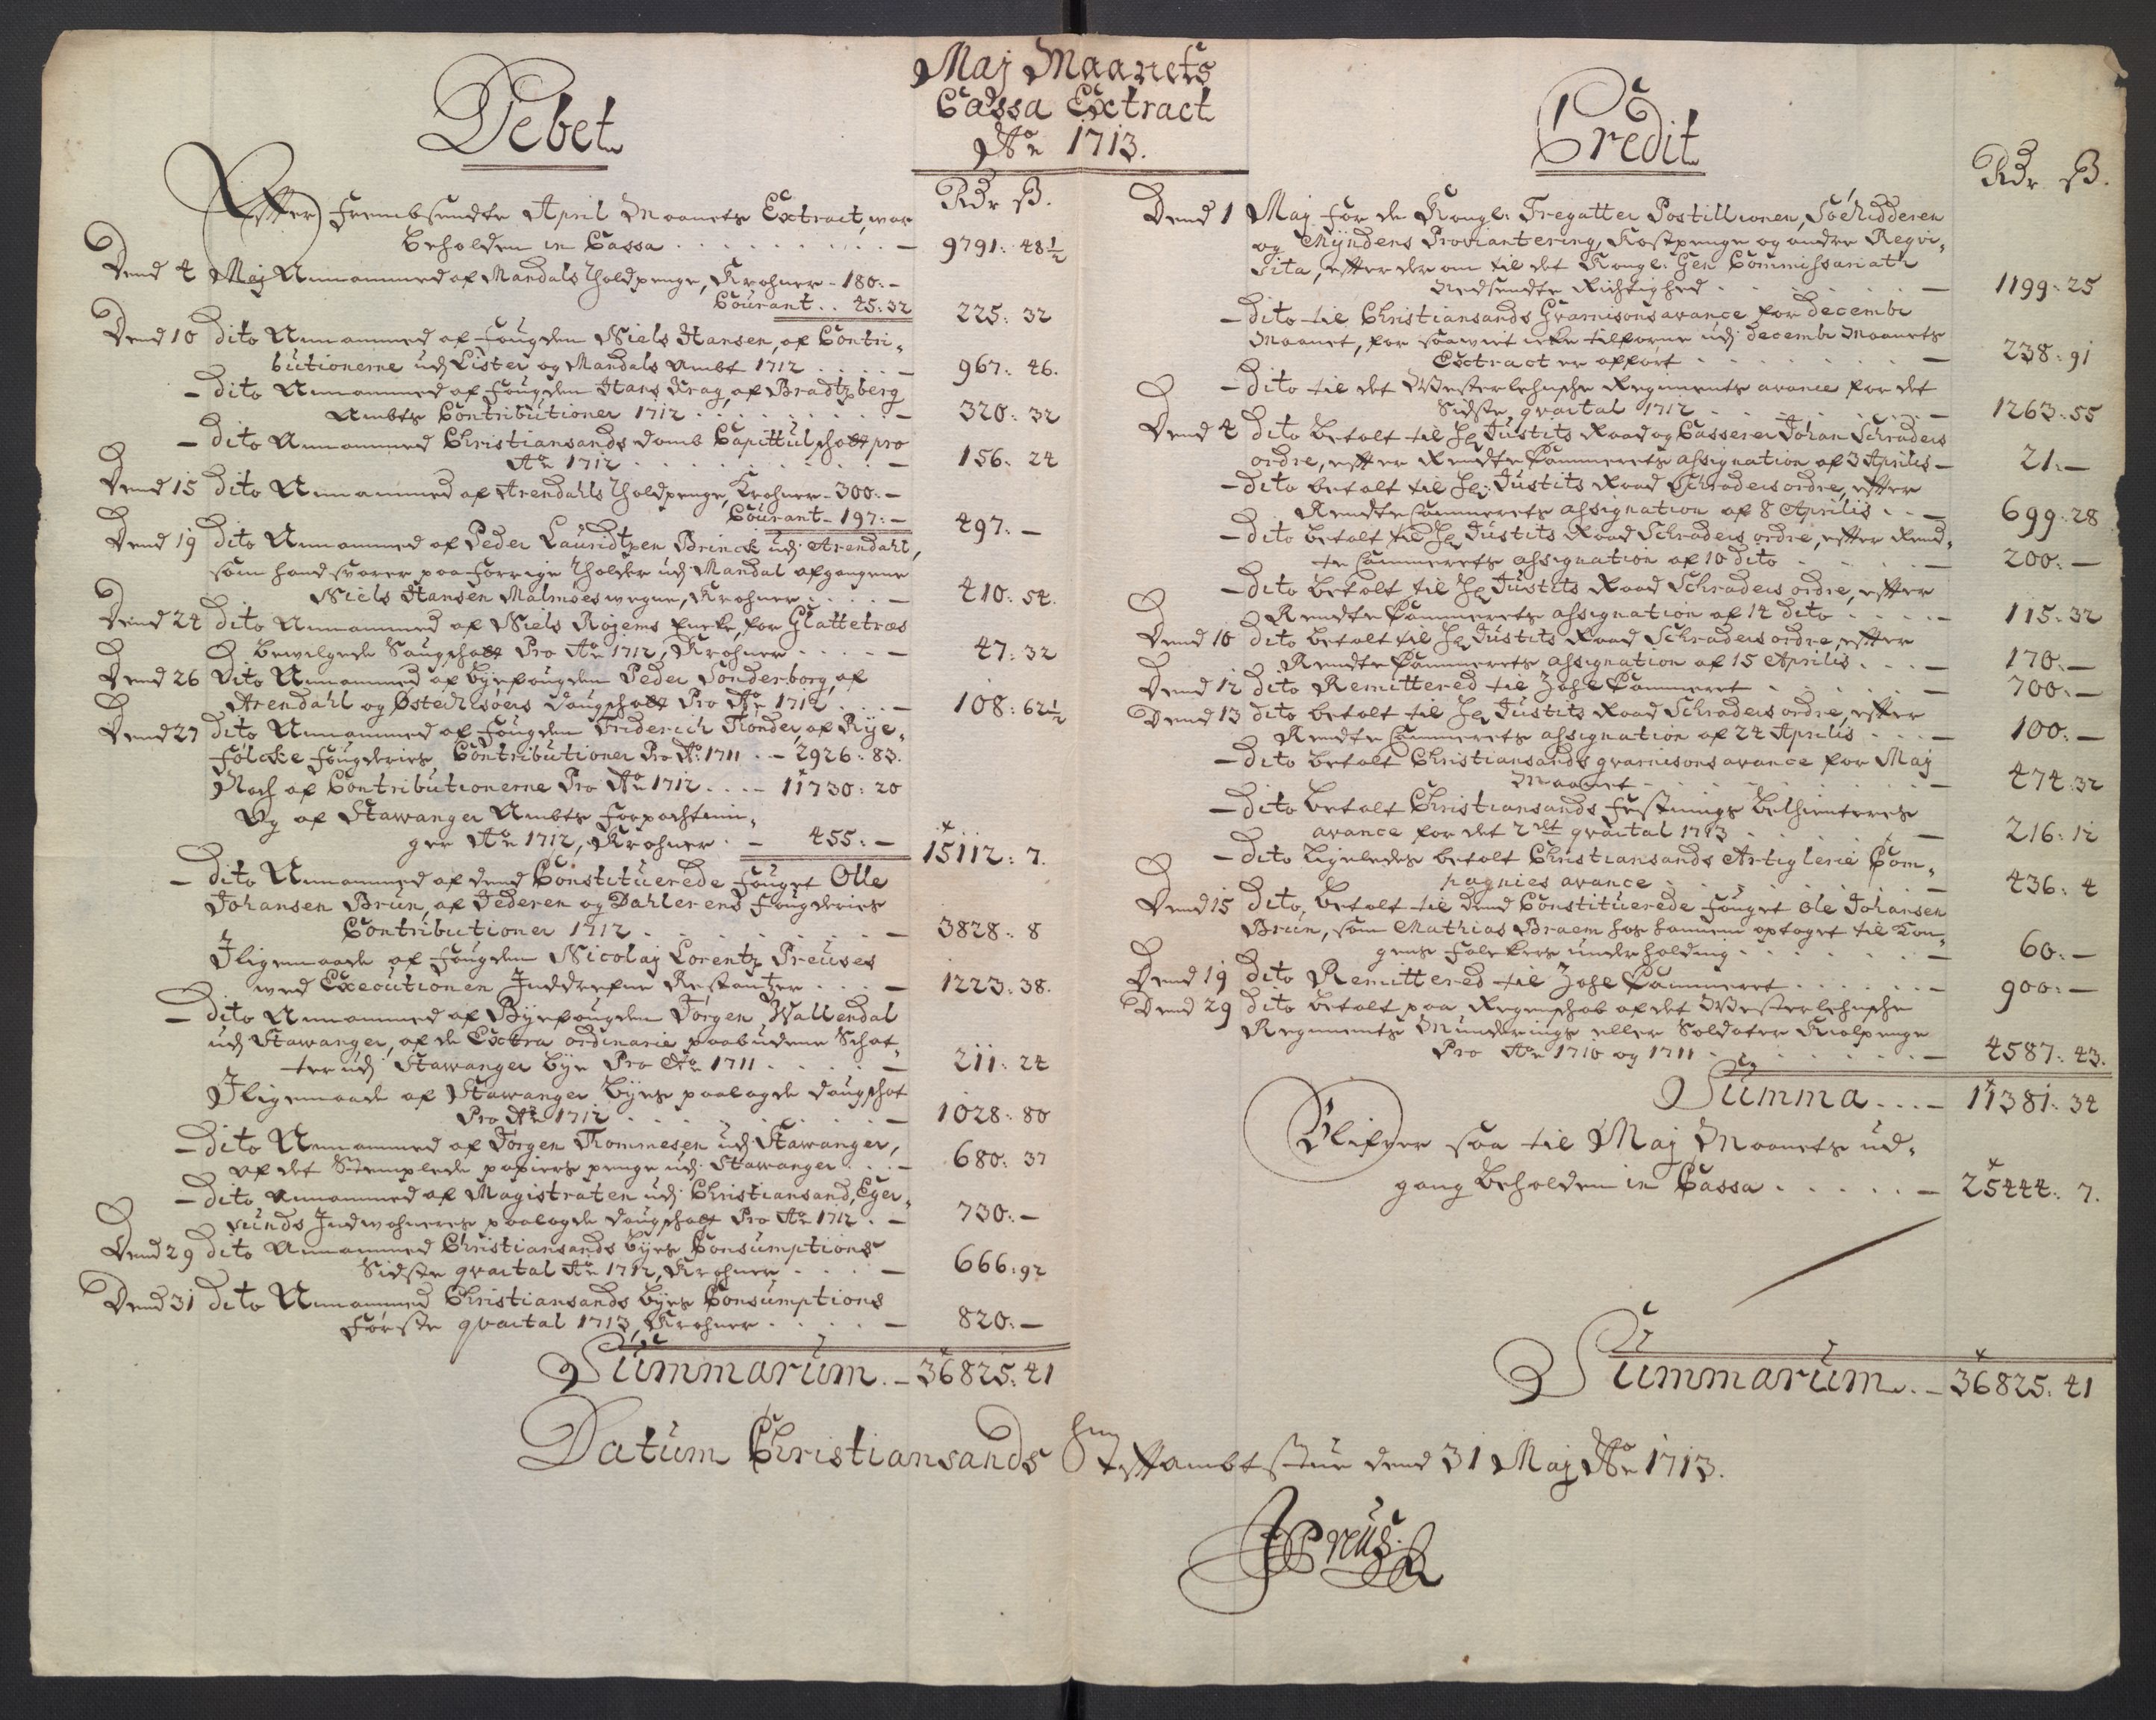 Maj Maanets
Cassa Extract
Ao 1713.
Debet
Rdr ß.
Effter frembsendte April Maanets Extract, war
beholden in Cassa . . . . . . . . . . – 9791: 48½
Dend 4 Maj Annammed af Mandals Tholdpenge, Krohner - 180: –
Courant . . 45: 32 225: 32
Dend 10 dito Annammed af fougden Niels Hansen, af Contri-
butionerne udj Lister og Mandals Ambt 1712 . . . . – 967: 46.
– dito Annammed af fougden Hans Krag, af Bradtzberg
Ambts Contributioner 1712 . . . . . . . – 320: 32
– dito Annammed Christiansands domb Capittulschatt pro
Ao 1712 . . . . . . . . . – 156: 24
Dend 15 dito Annammed af Arendahls Tholdpenge, Krohner - 300: –
Courant - 197: – 497: –
Dend 19 dito Annammed af Peder Lauridtzen Brinck udj Arendahl,
som hand svarer paa forrige Tholder udj Mandal afgangene
Niels Hansen Malmöes wegne, Krohner . . . . – 410: 54.
Dend 24 dito Annammed af Niels Röjems Encke, for Glattetræs
bewilgede Saugschatt Pro Ao 1712, Krohner . . . . . – 47: 32
Dend 26 Dito Annammed af byefougden Peder Sonderborg, af
Arendahl og Österrisöers daugschatt Pro Ao 1712 . . . – 108: 62½
Dend 27 dito Annammed af fougden Friderich Tonder, af Rye-
folcke fougderies Contributioner Pro Ao 1711 . . – 2926: 83.
Noch af Contributionerne Pro Ao 1712 . . . . – 11730: 20
Og af Stawanger Ambts forpachtnin-
ger Ao 1712, Krohner . – 455: – 15112: 7.
– dito Annammed af dend Constituerede fouget Olle
Johansen Brun, af Jederen og Dahlerens fougderies
Contributioner 1712 . . . . . . . . – 3828: 8
Jligemaade af fougden Nicolaj Lorentz Preuses
wed Executionen Inddrefne Restantzer . . . . – 1223: 38.
– dito Annammed af Byefougden Jörgen Wallendal
udj Stawanger, af de Extra ordinarie paabudene Schat-
ter udj Stawanger bye Pro Ao 1711 . . . . . – 211: 24
Jligemaade af Stawanger byes paalagde daugschat
Pro Ao 1712 . . . . . . . . – 1028: 80
– dito Annammed af Jörgen Thommesen udj Stawanger,
af det Stemplede papiers penge udj Stawanger . . . – 680: 37
– dito Annammed af Magistraten udj Christiansand, Eger-
sunds Indwohneres paalagde daugschatt Pro Ao 1712 . – 730: –
Dend 29 dito Annammed Christiansands byes Consumptions
Sidste qvartal Ao 1712, Krohner . . . . – 666: 92
Dend 31 dito Annammed Christiansands byes Consumptions
förste qvartal 1713, Krohner . . . . . – 820: –
Summarum . – 36825: 41
Credit
Rdr ß.
Dend 1 Maj for de Kongl: Fregatter Postillionen, Söeridderen
og Myndens Proviantering, Kostpenge og andre Reqvi-
sita, effter der om til det Kongl: Gen Commissariatz
Nedsendte Rictighed . . . . . . . – 1199: 25
– dito til Christiansands Gvarnisons avance for decembr
Maanet, for saawit icke tilforne udj decembr Maanets
Extract er opfört . . . . . . . . – 238: 91
– dito til det Westerlehnsche Regiments avance for det
Sidste qvartal 1712 . . . . . . . – 1263: 55
Dend 4 dito betalt til Hr Justits Raad og Casserer Johan Schröders
ordre, effter Rendte Cammerets assignation af 3 Aprilis – 21: –
– dito betalt til Hr: Justits Raad Schröders ordre, effter
Rendte Cammerets assignation af 8 Aprilis . . – 699: 28
– dito betalt til Hr Justits Raad Schröders ordre, effter Rend-
te Cammerets assignation af 10 dito . . . . . – 200: –
– dito betalt til Hr Justits Raad Schröders ordre, effter
Rendte Cammerets assignation af 14 dito . . . . . – 115: 32
Dend 10 dito betalt til Hr Justits Raad Schröders ordre, effter
Rendte Cammerets assignation af 15 Aprilis . . . – 170: –
Dend 12 dito Remittered til Zahl Cammeret . . . . . . – 700: –
Dend 13 dito betalt til Hr Justits Raad Schröders ordre, effter
Rendte Cammerets assignation af 24 Aprilis . . . – 100: –
– dito betalt Christiansands gvarnisons avance for Maj
Maanet . . . . . . . . . – 474: 32
– dito betalt Christiansands festnings betienteres
avance for det 2det qvartal 1713 . . . . . . – 216: 12
– dito ligeledes betalt Christiansands Artiglerie Com-
pagnies avance . . . . . . . . – 436: 4
Dend 15 dito, betalt til dend Constituerede fouget Ole Johansen
Brun, som Mathias Braem hos hannem optaget til Kon-
gens folckes underholding . . . . . . . – 60: –
Dend 19 dito Remittered til Zahl Cammeret . . . . . . – 900: –
Dend 29 dito betalt paa Regenschab af det Westerlehnsche
Regiments Munderings eller Soldater Kiolpenge
Pro Ao 1710 og 1711 . . . . . . . – 4587: 43.
Summa . . . – 11381: 34
Blifver saa til Maj Maanets ud-
gang beholden in Cassa . . . . . – 25444: 7.
Summarum . – 36825: 41
Datum Christiansands Stifftambtstue dend 31 Maj Ao 1713.
JPreus.